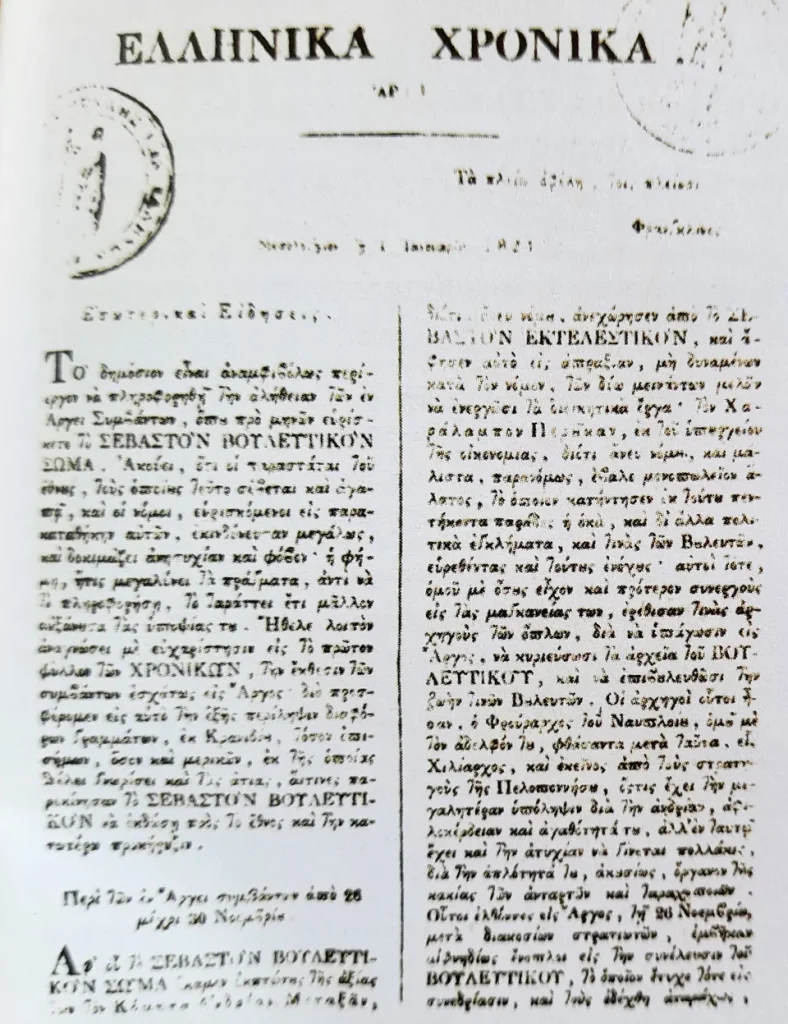 ΕΛΛΗΝΙΚΑ ΧΡΟΝΙΚΑ
Τὰ πλείω ὀφέλη, τοῖς πλείοσι
Φραγκλῖνος
Μεσολόγγιον 1 Ἰανουαρίου
Εσωτερικαὶ Εἰδήσεις.
ΤΟ δημόσιον εἶναι ἀναμφιβόλως περί-
εργον νὰ πληροφορηθῇ τὴν ἀλήθειαν τῶν ἐν
Ἄργει Συμβάντων, ὅπου πρὸ μηνῶν εὑρίσ-
κετο τὸ ΣΕΒΑΣΤΟΝ ΒΟΥΛΕΥΤΙΚΟΝ
ΣΩΜΑ. Ἀκούει, ὅτι οἱ παραστάται τοῦ
ἔθνους, τοὺς ὁποίους τοῦτο σέβεται καὶ ἀγα-
πᾷ, καὶ οἱ νόμοι, εὑρισκόμενοι εἰς παρα-
καταθήκην αὐτῶν, ἐκινδύνευσαν μεγάλως,
καὶ δοκιμάζει ἀνησυχίαν καὶ φόβον· ἡ φή-
μη, ἥτις μεγαλύνει τὰ πράγματα, ἀντὶ νὰ
τὸ πληροφορήσῃ, τὸ ταράττει ἔτι μᾶλλον
αὐξάνουσα τὰς ὑποψίας του. Ἤθελε λοιπὸν
ἀναγνώσει μὲ εὐχαρίστησιν εἰς τὸ πρῶτον
φύλλον τῶν ΧΡΟΝΙΚΩΝ, τὴν ἔκθεσιν τῶν
συμβάντων ἐσχάτως εἰς Ἄργος· διὸ προσ-
φέρομεν εἰς αὐτὸ τὴν ἑξῆς περίληψιν διαφό-
ρων γραμμάτων, ἐκ Κρανιδίου, τόσον ἐπι-
σήμων, ὅσον καὶ μερικῶν, ἐκ τῆς ὁποίας
θέλει γνωρίσει καὶ τὰς αἰτίας, αἵτινες πα-
ρεκίνησαν τὸ ΣΕΒΑΣΤΟΝ ΒΟΥΛΕΥΤΙ-
ΚΟΝ νὰ ἐκδώσῃ πρὸς τὸ ἔθνος καὶ τὴν κα-
τωτέρω προκήρυξιν.
Περὶ τῶν ἐν Ἄργει συμβάντων ἀπὸ 26
μέχρι 30 Νοεμβρίου
Αφ' οὗ τὸ ΣΕΒΑΣΤΟΝ ΒΟΥΛΕΥΤΙ-
ΚΟΝ ΣΩΜΑ ἔκαμεν ἔκπτωτον τῆς ἀξίας
του τὸν Κόμητα Ἀνδρέαν Μεταξᾶν,
διότι ἄνευ νόμου, ἀνεχώρησεν ἀπὸ τὸ ΣΕ-
ΒΑΣΤΟΝ ΕΚΤΕΛΕΣΤΙΚΟΝ, καὶ ἄ-
φησεν αὐτὸ εἰς ἀπραξίαν, μὴ δυναμένων
κατὰ τὸν νόμον, τῶν δύω μεινάντων μελῶν
νὰ ἐνεργῶσι τὰ διοικητικὰ ἔργα· τὸν Χα-
ράλαμπον Περῆκαν, ἐκ τοῦ ὑπουργείου
τῆς οἰκονομίας, διότι ἄνευ νόμου, καὶ μά-
λιστα, παρανόμως, ἔβαλε μονοπωλεῖον ἅ-
λατος, τὸ ὁποῖον κατήντησεν ἐκ τούτου πεν-
τήκοντα παράδας ἡ ὀκᾶ, καὶ δι' ἄλλα πολι-
τικὰ ἐγκλήματα, καὶ τινὰς τῶν Βουλευτῶν,
εὑρεθέντας καὶ τούτους ἐνόχους· αὐτοὶ τότε,
ὁμοῦ μὲ ὅσους εἶχον καὶ πρότερον συνεργοὺς
εἰς τὰς μαγγανείας των, ἐρέθισαν τινὰς ἀρ-
χηγοὺς τῶν ὅπλων, διὰ νὰ ὑπάγωσιν εἰς
Ἄργος, νὰ κυριεύσωσι τὰ ἀρχεῖα τοῦ ΒΟΥ-
ΛΕΥΤΙΚΟΥ, καὶ νὰ ἐπιβουλευθῶσι τὴν
ζωὴν τινῶν Βουλευτῶν. Οἱ ἀρχηγοὶ οὗτοι ἦ-
σαν, ὁ Φρούραρχος τοῦ Ναυπλίου, ὁμοῦ μὲ
τὸν ἀδελφόν του, φθάσαντα μετὰ ταῦτα, εἷς
Χιλίαρχος, καὶ ἐκεῖνος ἀπὸ τοὺς στρατη-
γοὺς τῆς Πελοποννήσου, ὅστις ἔχει τὴν με-
γαλητέραν ὑπόληψιν διὰ τὴν ἀνδρίαν, ἀφι-
λοκέρδειαν καὶ ἀγαθότητά του, ἀλλ' ἐν ταυτῷ
ἔχει καὶ τὴν ἀτυχίαν νὰ γίνεται πολλάκις,
διὰ τὴν ἁπλότητά του, ἀκουσίως, ὄργανον τῆς
κακίας τῶν ἀνταρτῶν καὶ ταραχοποιῶν.
Οὗτοι ἐλθόντες εἰς Ἄργος, τῇ 26 Νοεμβρίου,
μετὰ διακοσίων στρατιωτῶν, ἐμβῆκαν
αἰφνηδίως ἔνοπλοι εἰς τὴν συνέλευσιν τοῦ
ΒΟΥΛΕΥΤΙΚΟΥ, τὸ ὁποῖον ἔτυχε τότε εἰς
συνεδρίασιν, καὶ τοὺς ἐδέχθη ἀταράχως,